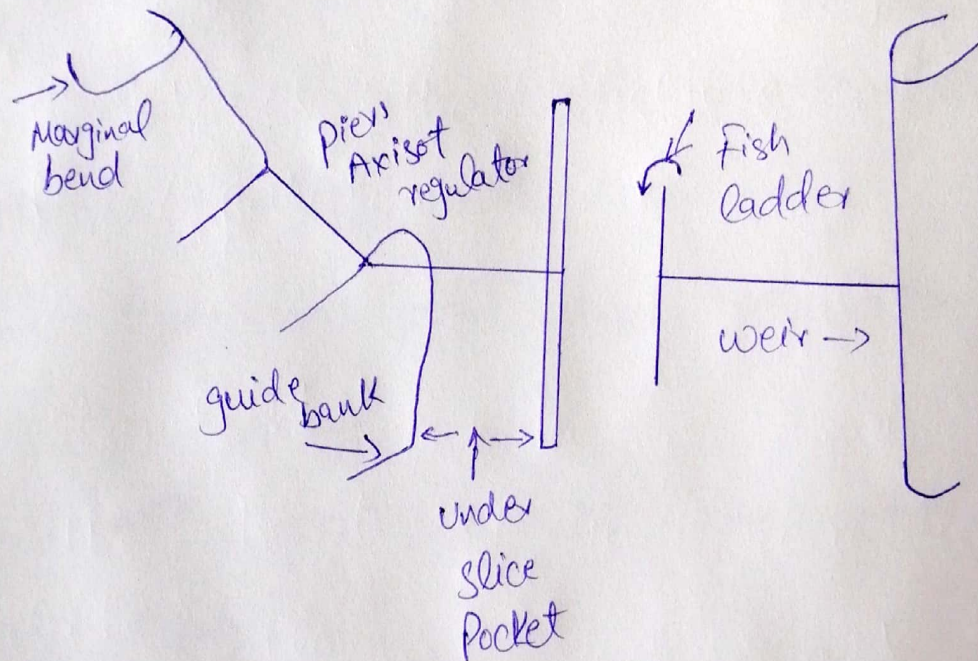 Marginal
bend
Piers
Axisot
regulator
Fish
ladder
weir
guide
bank
under
slice
Pocket